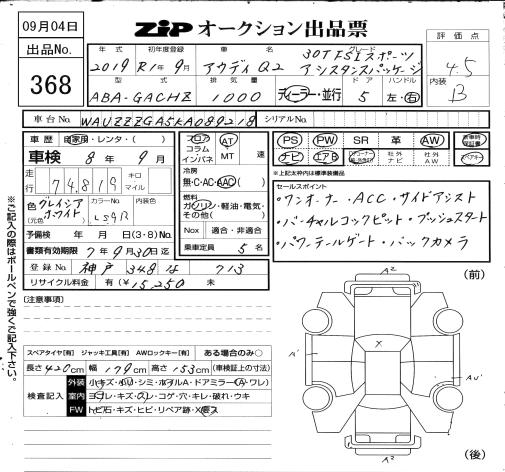 09月04日
ZiP オークション出品票
出品No.
368
年式 初年度登録 車名 グレード
2019 R1年9月 アウディQ2 30TFSIスポーツ
アシスタンスパッケージ
型式 排気量 ドア ハンドル
ABA-GACHZ 1000 ディーラー・並行 5 左・右
評価点
4.5
内装
B
車台No. WAUZZZGA5KA089218 シリアルNo.
車歴 自家用・レンタ・( )
車検 8年9月
走行 74,819 キロ マイル
色 グレイシアホワイト カラーNo. LS9R 内装色
(元色)
予備検 年 月 日(3・8)No.
書類有効期限 7年9月30日迄
登録No. 神戸 348 は 713
リサイクル料金 有(¥15,250 未
フロア コラム インパネ AT MT 速
冷房
無・C・AC・AAC( )
燃料
ガソリン・軽油・電気・
その他( )
Nox 適合・非適合
乗車定員 5 名
PS PW SR 革 AW
ナビ エアB 社外ナビ 社外AW スペアキー
※上記太枠内は標準装備品
セールスポイント
・ワンオーナー・ACC・サイドアシスト
・バーチャルコックピット・プッシュスタート
・パワーテールゲート・バックカメラ
(注意事項)
スペアタイヤ[有] ジャッキ工具[有] AWロックキー[有] ある場合のみ○
長さ420cm 幅179cm 高さ153cm (車検証上の寸法)
検査記入
外装 小キズ・小U・シミ・ホイルA・ドアミラー(A・ワレ)
室内 ヨゴレ・キズ・スレ・コゲ・穴・キレ・破れ・ウキ
FW トビ石・キズ・ヒビ・リペア跡・X要ス
※ご記入の際はボールペンで強くご記入下さい。
(前)
A2
X
A'
AU'
A2
(後)